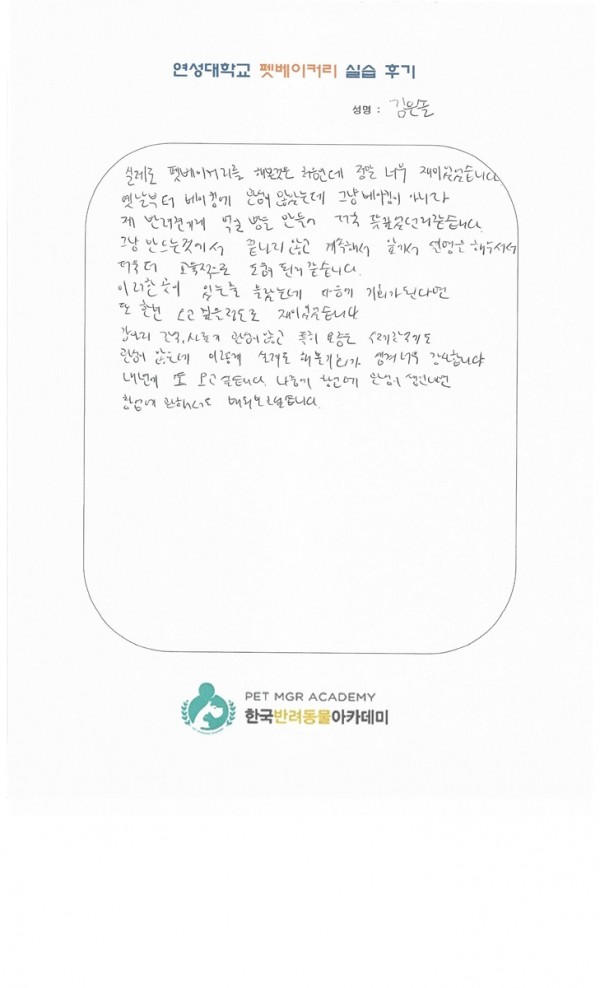 연성대학교 펫베이커리 실습 후기
성명 : 김은솔
실제로 펫베이커리를 해본것은 처음인데 정말 너무 재미있었습니다
옛날부터 베이킹에 관심이 많았는데 그냥 베이킹이 아니라
제 반려견에게 먹일 빵을 만들어 더욱 뜻깊었던거같습니다.
그냥 만드는것에서 끝나지 않고 계속해서 앞에서 설명을 해주셔서
더욱 더 교육적으로 도움이 된거같습니다.
이러한 곳이 있는줄 몰랐는데 다음에 기회가된다면
또 한번 오고 싶을정도로 재미있었습니다
간식, 사료에 관심이 많고 특히 요즘은 수제간식에도
관심이 많은데 이렇게 실제로 해볼기회가 생겨 너무 감사합니다
내년에 또 오고 싶습니다. 나중에 창업에 관심이 생긴다면
창업에 관해서도 배워보고싶습니다.
PET MGR ACADEMY
한국반려동물아카데미